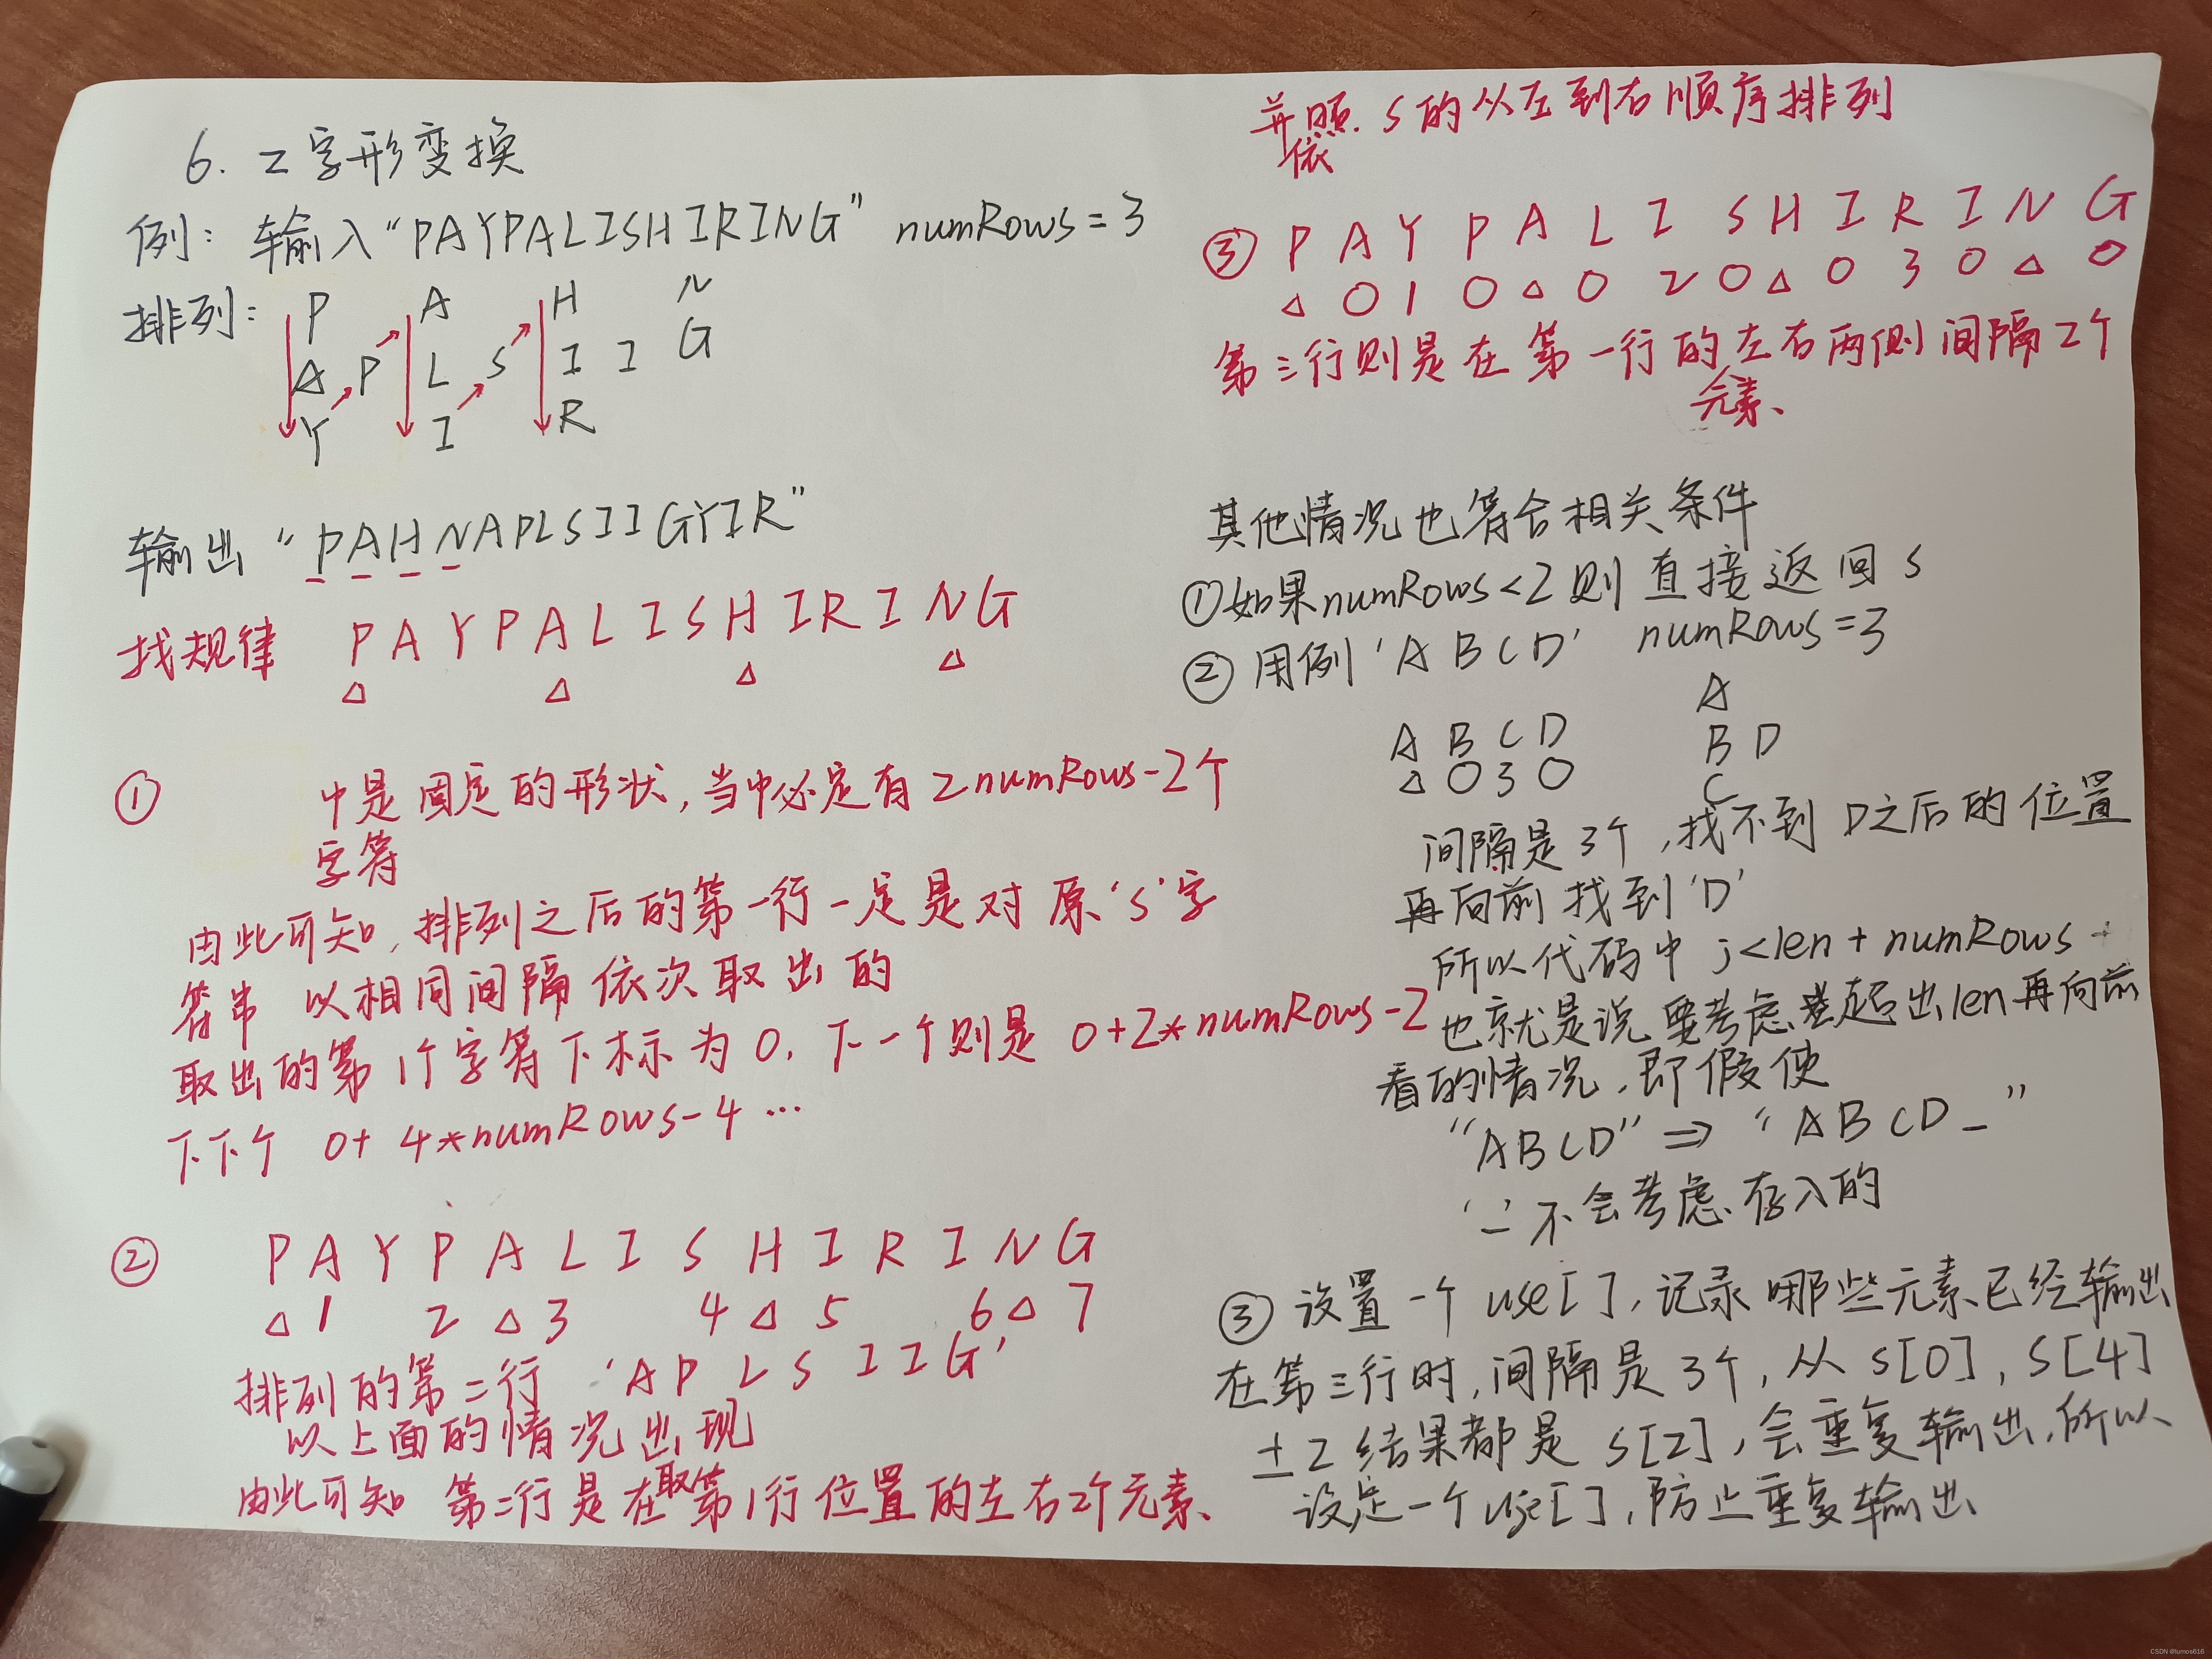 6. Z字形变换
例: 输入“PAYPALISHIRING” numRows = 3
排列: P A H N
A P L S I I G
Y I R
输出 “PAHNAPLSIIGYIR”
找规律 P A Y P A L I S H I R I N G
△ △ △ △
① 中是固定的形状,当中必定有2numRows-2个
字符
由此可知,排列之后的第一行一定是对原‘s’字
符串 以相同间隔依次取出的
取出的第1个字符下标为0, 下一个则是 0+2*numRows-2
下下个 0+ 4*numRows-4 ...
② P A Y P A L I S H I R I N G
△ 1 2 △ 3 4 △ 5 6 △ 7
排列的第二行 ‘A P L S I I G’
以上面的情况出现
由此可知 第二行是在取第1行位置的左右2个元素、
并依照 s的从左到右顺序排列
③ P A Y P A L I S H I R I N G
△ 0 1 0 △ 0 2 0 △ 0 3 0 △ 0
第三行则是在第一行的左右两侧间隔2个
元素、
其他情况也符合相关条件
①如果numRows<2则直接返回 s
② 用例‘A B C D’ numRows=3
A B C D
△ 0 3 0
A
B D
C
间隔是3个,找不到 D之后的位置
再向前找到‘D’
所以代码中 j<len + numRows
也就是说要考虑超出len再向前
看的情况,即假使
“ABCD” ⇒ “ABCD_”
‘_’不会考虑存入的
③ 设置一个 use[],记录哪些元素已经输出
在第三行时,间隔是3个,从 s[0], s[4]
±2 结果都是 s[2],会重复输出,所以
设定一个use[],防止重复输出
CSDN @lumos616